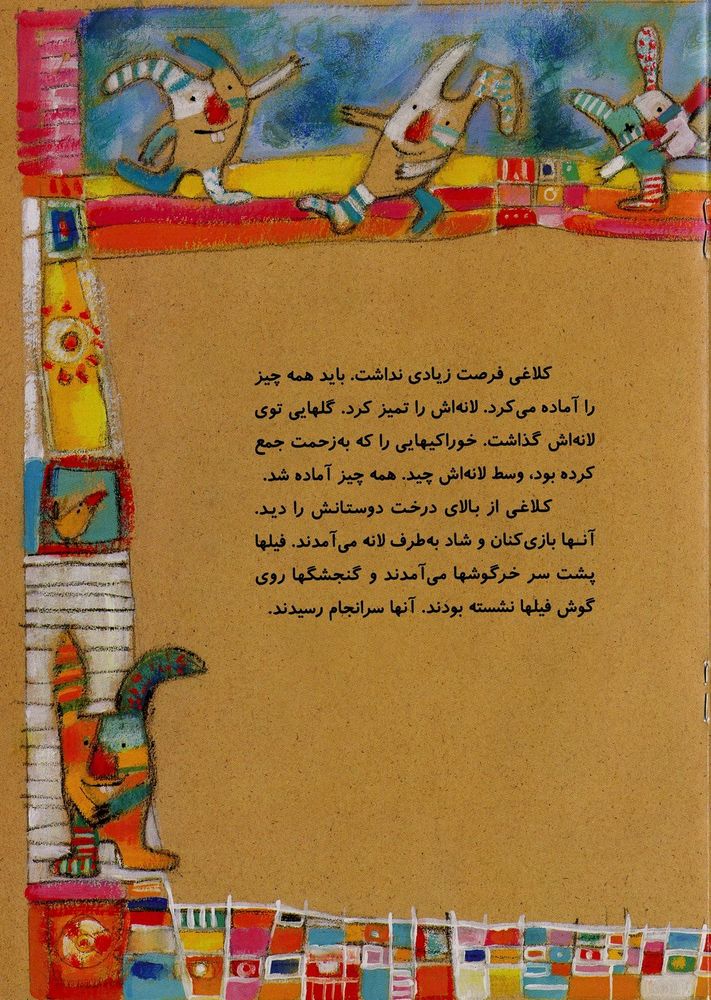 کلاغی فرصت زیادی نداشت. باید همه چیز
را آماده می‌کرد. لانه‌اش را تمیز کرد. گلهایی توی
لانه‌اش گذاشت. خوراکیهایی را که به‌زحمت جمع
کرده بود، وسط لانه‌اش چید. همه چیز آماده شد.
کلاغی از بالای درخت دوستانش را دید.
آنها بازی‌کنان و شاد به‌طرف لانه می‌آمدند. فیلها
پشت سر خرگوشها می‌آمدند و گنجشگها روی
گوش فیلها نشسته بودند. آنها سرانجام رسیدند.